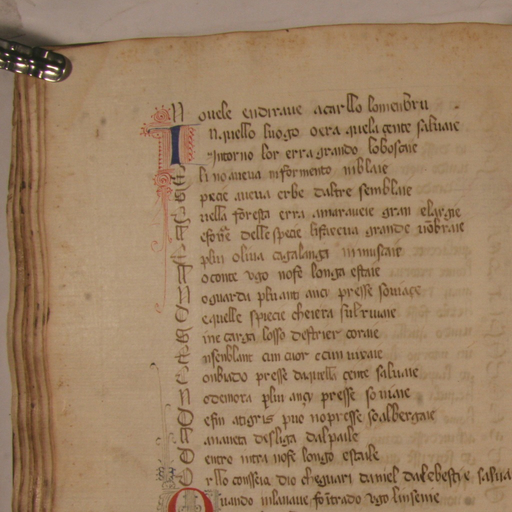 N ouele endiraue acarllo lomenbru
I n quello luogo oera quela çente saluaie
intorno lor erra grando loboscaie
li no aueua in formento ni blaie
pecie aueua erbe daltre senblaie
nella foresta erra amaraueie gran e largie
e fore delle specie li faceua grande
plu oliua e galanga in mustaie
o conte vgo no fe longa estaie
o guarda plu anti ançi presse souiaçe
e quelle specie che iera sul riuaie
ne carga losso destrier coraie
nsenblant cun cuor e cun uixaie
onbiado presse daquella çente saluaie
o demora plu ançi presse so uiaie
e fin atigris pue no presse so albergaie
a naueta desliga dal paile
entro intra no fe longo estaile
rllo conseia dio che guari daniel dal e bestie salua
Q uando in la naue fo intrado vgo linsenie